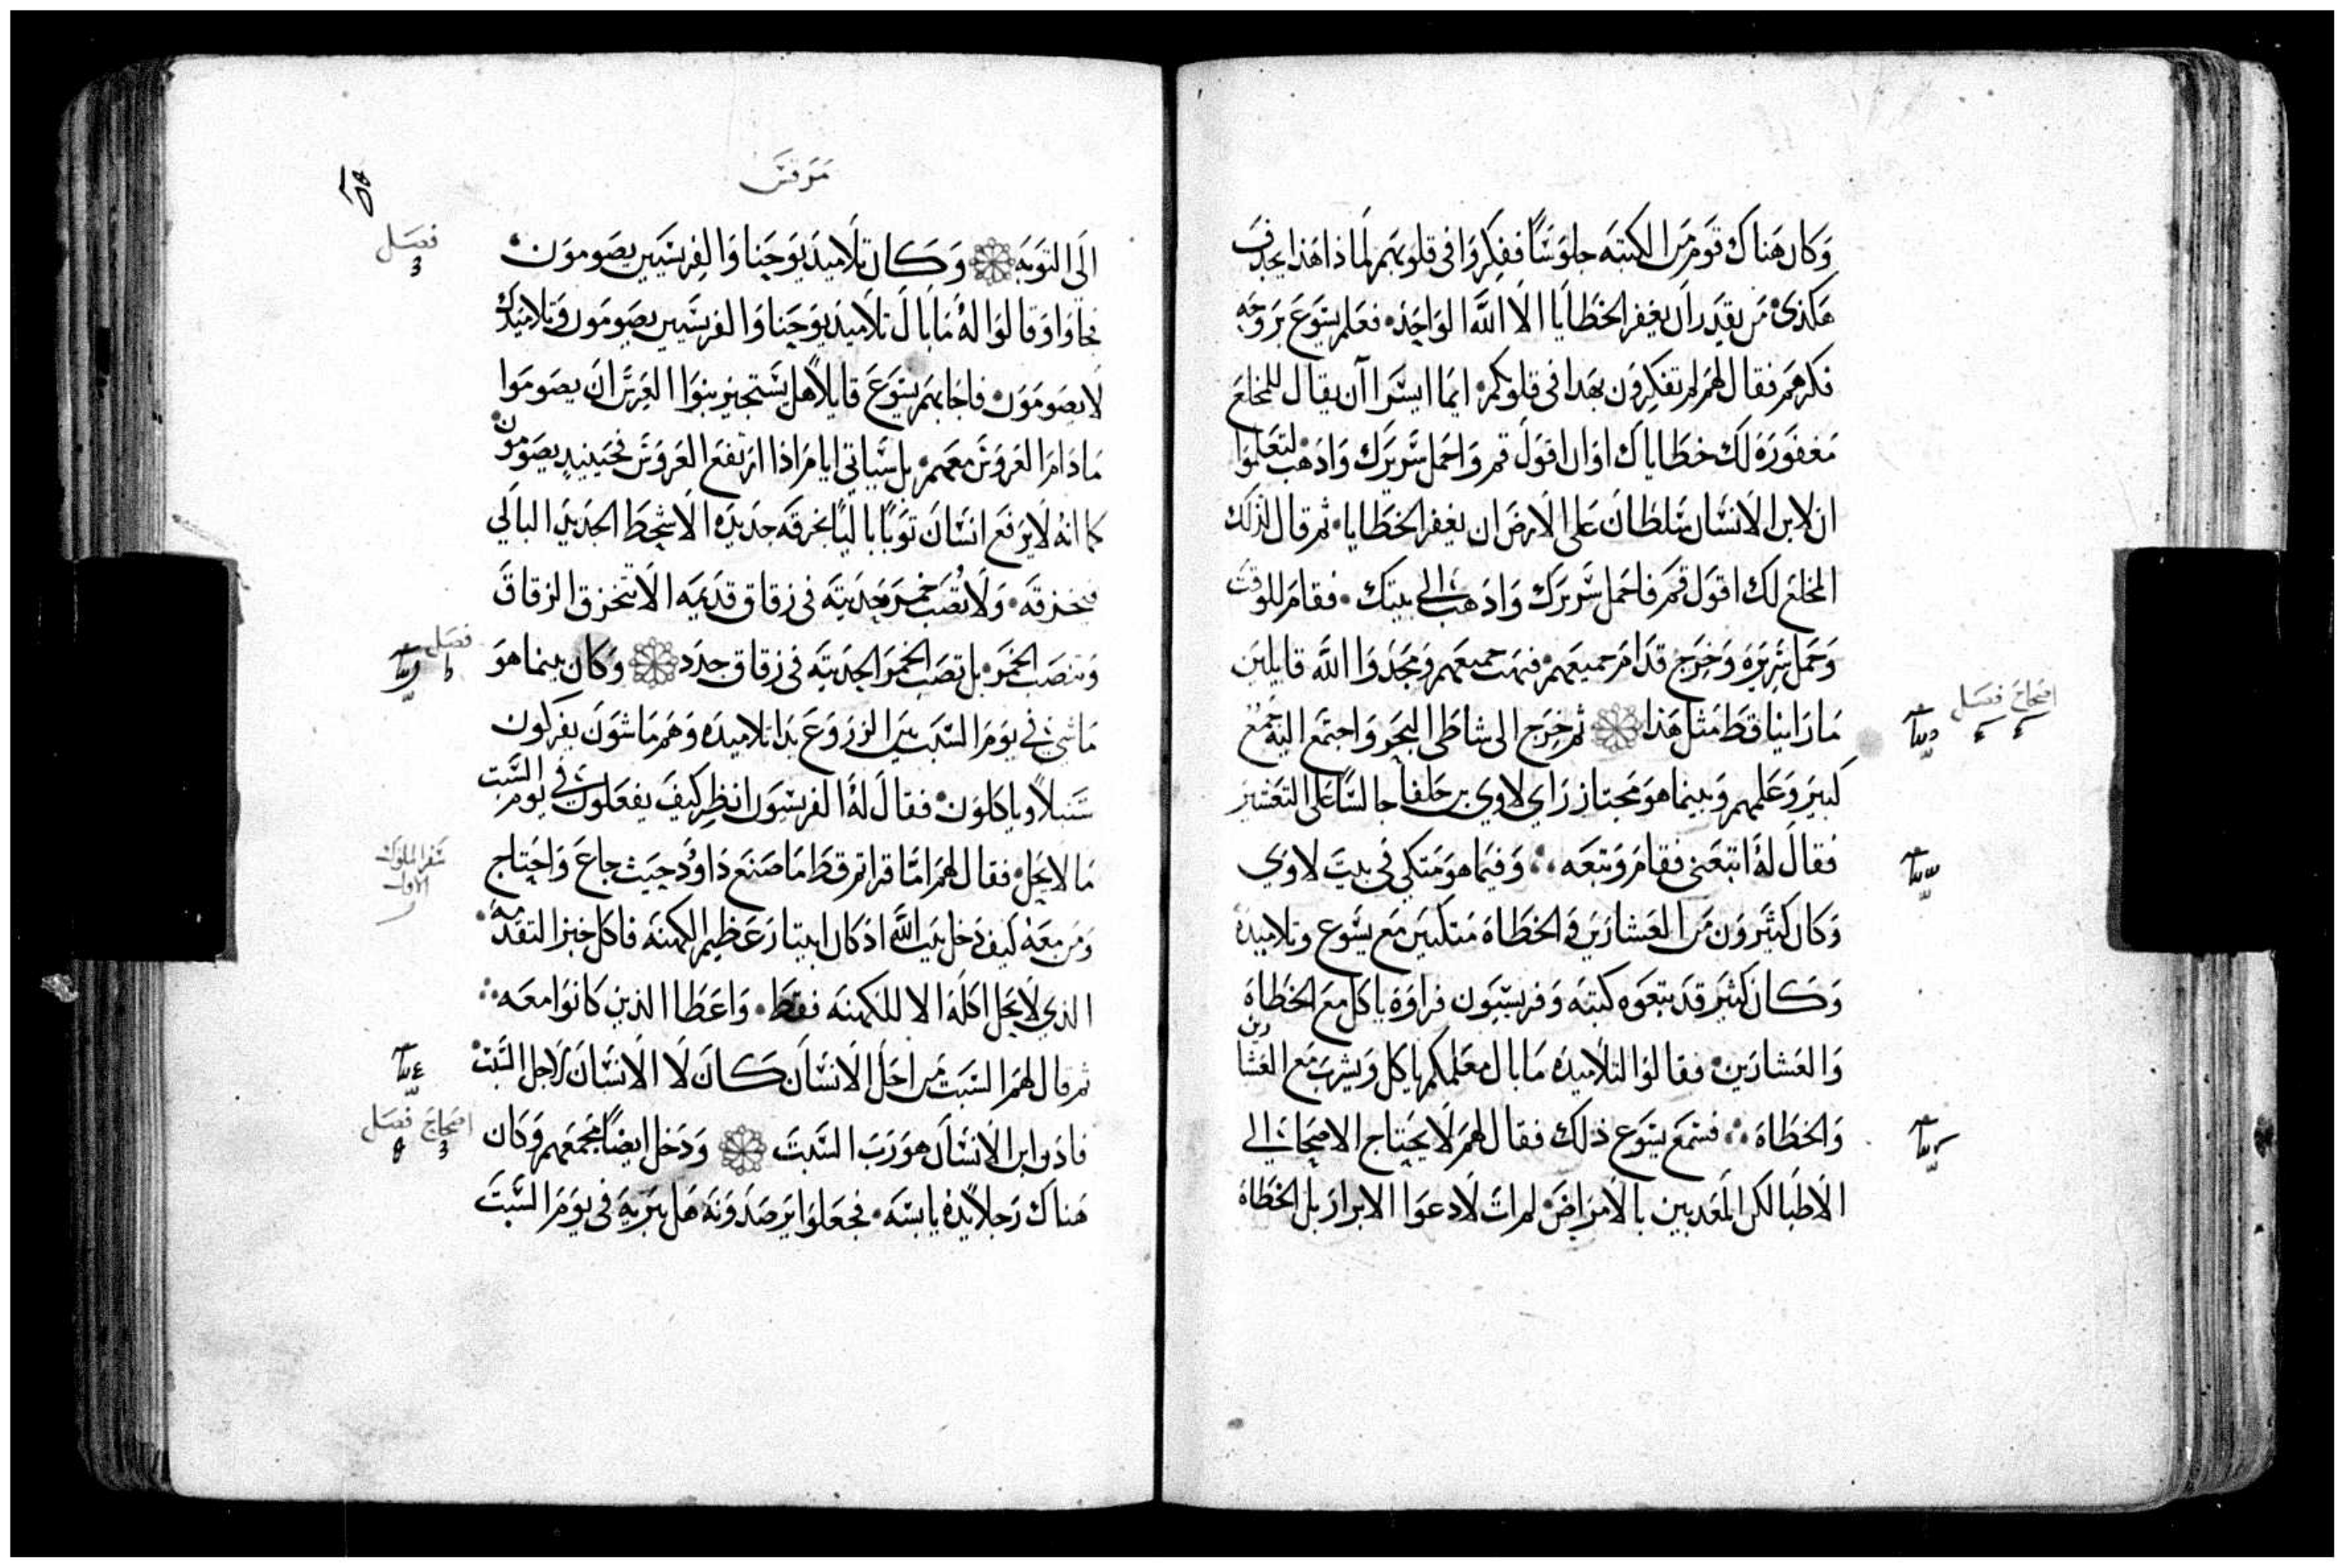 وكان هناك قوم من الكتبه جلوسًا ففكروا في قلوبهم لماذا هذا يجدف
هكذى من يقدر ان يغفر الخطايا الا الله الواحد فعلم يسوع بروحه
فكرهم فقال لهم لم تفكرون بهدا في قلوبكم ايما ايسر ان يقال للمخلع
مغفورة لك خطاياك او ان اقول قم واحمل سريرك واذهب لتعلموا
ان لابن الانسان سلطان على الارض ان يغفر الخطايا ثم قال لذلك
المخلع لك اقول قم فاحمل سريرك واذهب الي بيتك فقام للوقت
وحمل سريره وخرج قدام جميعهم فبهت جميعهم ومجدوا الله قايلين
ما راينا قط مثل هذا ثم خرج الى شاطى البحر واجتمع اليه جمع
اصحاح فصل
كبير وعلمهم وبينما هو مجتاز راي لاوي بن حلفا جالسًا على التعشير
فقال له اتبعنى فقام وتبعه وفيما هو متكي في بيت لاوي
وكان كثيرون من العشارين والخطاة متكيين مع يسوع وتلاميده
وكان كثير قد تبعوه كتبه وفريسيون فراوه ياكل مع الخطاة
والعشارين فقالوا لتلاميده ما بال معلمكم ياكل ويشرب مع العشارين
والخطاة فسمع يسوع ذلك فقال لهم لا يحتاج الاصحا الي
الاطبا لكن المعدبين بالامراض لم ات لادعوا الابرار بل الخطاة
مرقس
الى التوبه وكان تلاميد يوحنا والفريسيين يصومون
فصل
فجاوا وقالوا له ما بال تلاميد يوحنا والفريسيين يصومون وتلاميدك
لا يصومون فاجابهم يسوع قايلًا هل يستجيز بنوا العرس ان يصوموا
ما دام العروس معهم بل ستاتي ايام اذا ارتفع العروس فحينيد يصومون
كما انه لا يرقع انسان توبًا باليًا بخرقه جديده الا شحط الجديد البالي
فيخزقه ولا تصب خمر جديته في زقاق قديمه الا تنخرق الزقاق
وتنصب الخمر بل تصب الخمر الجديته في زقاق جدد وكان بينما هو
فصل
ماشي في يوم السبت بين الزروع بدا تلاميده وهم ماشون يفركون
سنبلًا وياكلون فقال له الفريسيون انظر كيف يفعلون في يوم السبت
ما لا يحل فقال لهم اما قراتم قط ما صنع داوود حيث جاع واحتاج
سفر الملوك
الاول
ومن معه كيف دخل بيت الله اذ كان ابيتار عظيم الكهنه فاكل خبز التقدمه
الذي لا يحل اكله الا للكهنه فقط واعطا الذين كانوا معه
ثم قال لهم السبت من اجل الانسان كان لا الانسان لاجل السبت
فاذن ابن الانسان هو رب السبت ودخل ايضًا مجمعهم وكان
اصحاح فصل
هناك رجلًا يده يابسه فجعلوا يرصدونه هل يبريه في يوم السبت